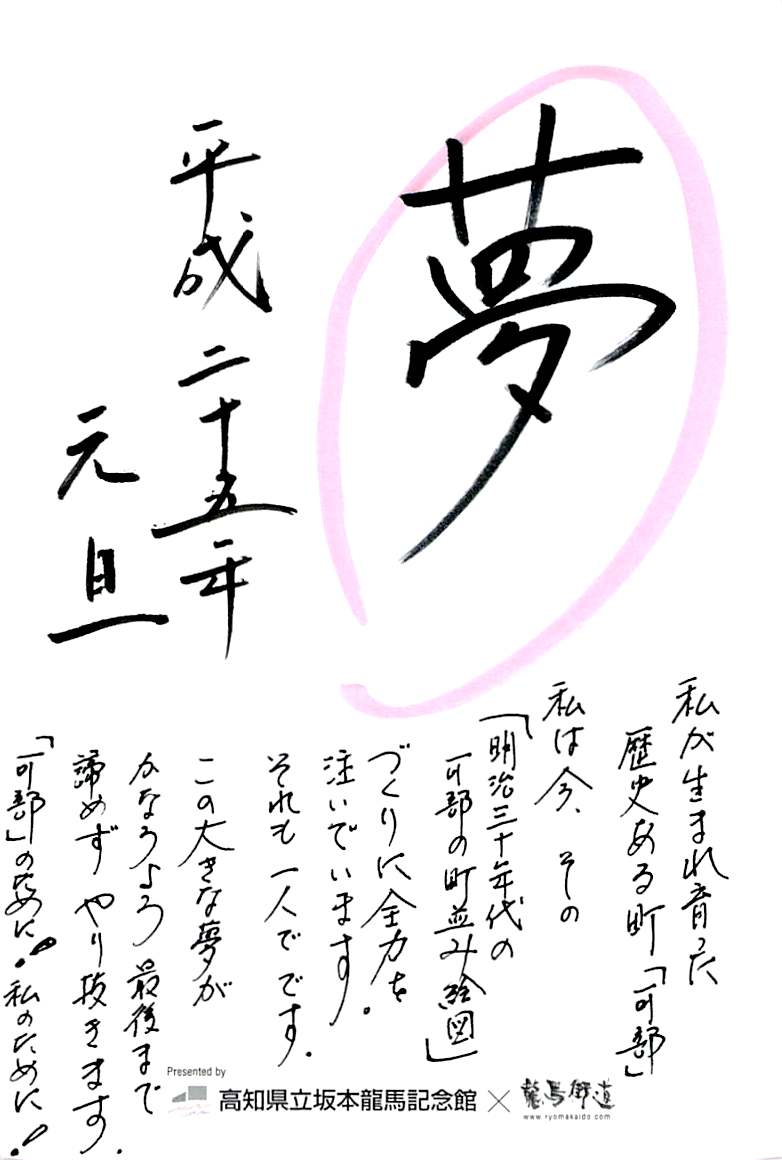 夢
平成二十五年
元旦
私が生まれ育った
歴史ある町「可部」
私は今、その
「明治三十年代の
可部の町並み絵図」
づくりに全力を
注いでいます。
それも一人でです。
この大きな夢が
かなうよう最後まで
諦めずやり抜きます。
「可部」のために!私のために!
Presented by
高知県立坂本龍馬記念館×龍馬街道
www.ryomakaido.com